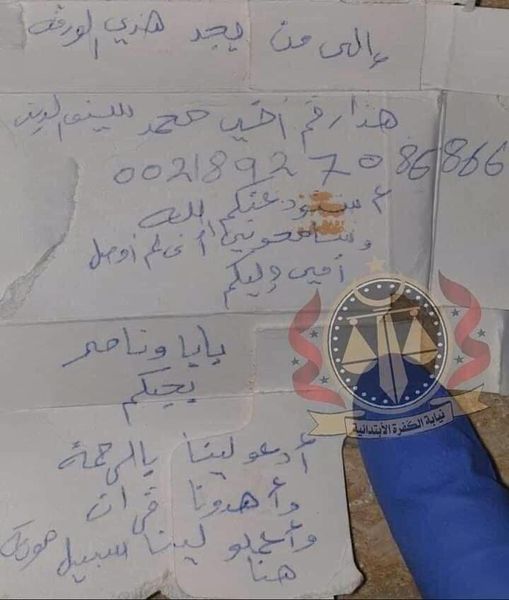 والى من يجد هذي الورقه
هذا رقم أخي محمد
00218927086866
استودعتكم الله
وسامحوني أن لم أوصل
أمي ليكم
بابا وناصر
يحبكم
أدعو لينا بالرحمة
وأهدونا قرأن
وأعملو لينا سبيل
هنا
نيابة الكفرة الإبتدائية